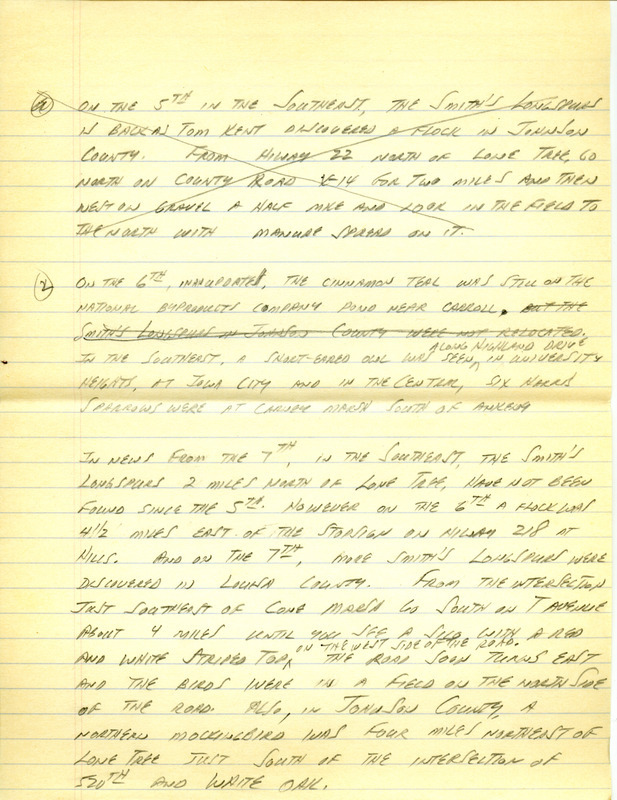 ① ON THE 5TH IN THE SOUTHEAST, THE SMITH'S LONGSPURS
IS BACK AS TOM KENT DISCOVERED A FLOCK IN JOHNSON
COUNTY. FROM HIWAY 22 NORTH OF LONE TREE, GO
NORTH ON COUNTY ROAD X-14 FOR TWO MILES AND THEN
WEST ON GRAVEL A HALF MILE AND LOOK IN THE FIELD TO
THE NORTH WITH MANURE SPREAD ON IT.
② ON THE 6TH, IN THE CINNAMON TEAL WAS STILL ON THE
NATIONAL BYPRODUCTS COMPANY POND NEAR CARROLL. BUT THE
SMITH'S LONGSPURS IN JOHNSON COUNTY WERE NOT RELOCATED.
ALONG HIGHLAND DRIVE
IN THE SOUTHEAST, A SHORT-EARED OWL WAS SEEN IN UNIVERSITY
HEIGHTS, AT IOWA CITY AND IN THE CENTRAL, SIX HARRIS
SPARROWS WERE AT CARNEY MARSH SOUTH OF ANKENY
IN NEWS FROM THE 7TH, IN THE SOUTHEAST, THE SMITH'S
LONGSPURS 2 MILES NORTH OF LONE TREE, HAVE NOT BEEN
FOUND SINCE THE 5TH. HOWEVER ON THE 6TH A FLOCK WAS
4 1/2 MILES EAST OF THE STOPSIGN ON HIWAY 218 AT
HILLS. AND ON THE 7TH, MORE SMITH'S LONGSPURS WERE
DISCOVERED IN LOUISA COUNTY. FROM THE INTERSECTION
JUST SOUTHEAST OF CONE MARSH GO SOUTH ON T AVENUE
ABOUT 4 MILES UNTIL YOU SEE A SILO WITH A RED
ON THE WEST SIDE OF THE ROAD.
AND WHITE STRIPED TOP THE ROAD SOON TURNS EAST
AND THE BIRDS WERE IN A FIELD ON THE NORTH SIDE
OF THE ROAD. ALSO, IN JOHNSON COUNTY, A
NORTHERN MOCKINGBIRD WAS FOUR MILES NORTHEAST OF
LONE TREE JUST SOUTH OF THE INTERSECTION OF
520TH AND WHITE OAK.